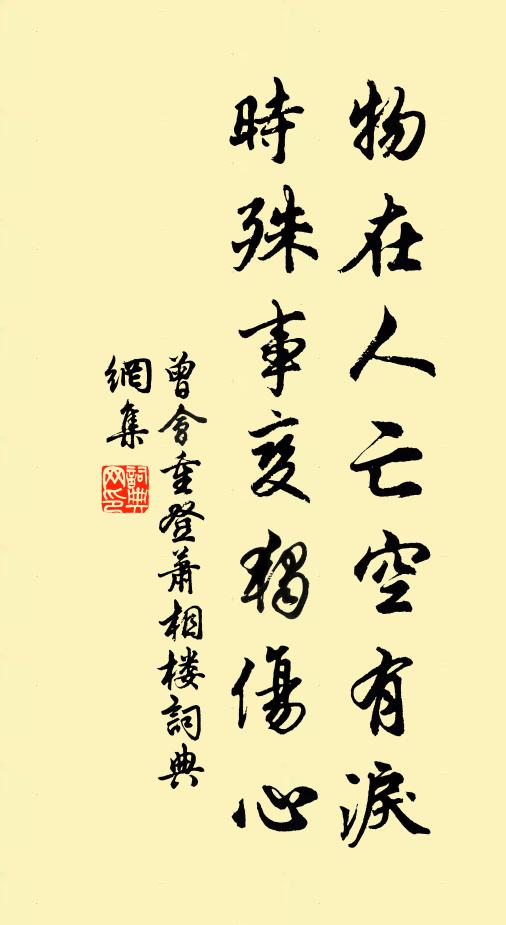 物在人亡空有淚
時殊事变獨傷心
曾會重登蕭相楼詞典
網集
詞典网印